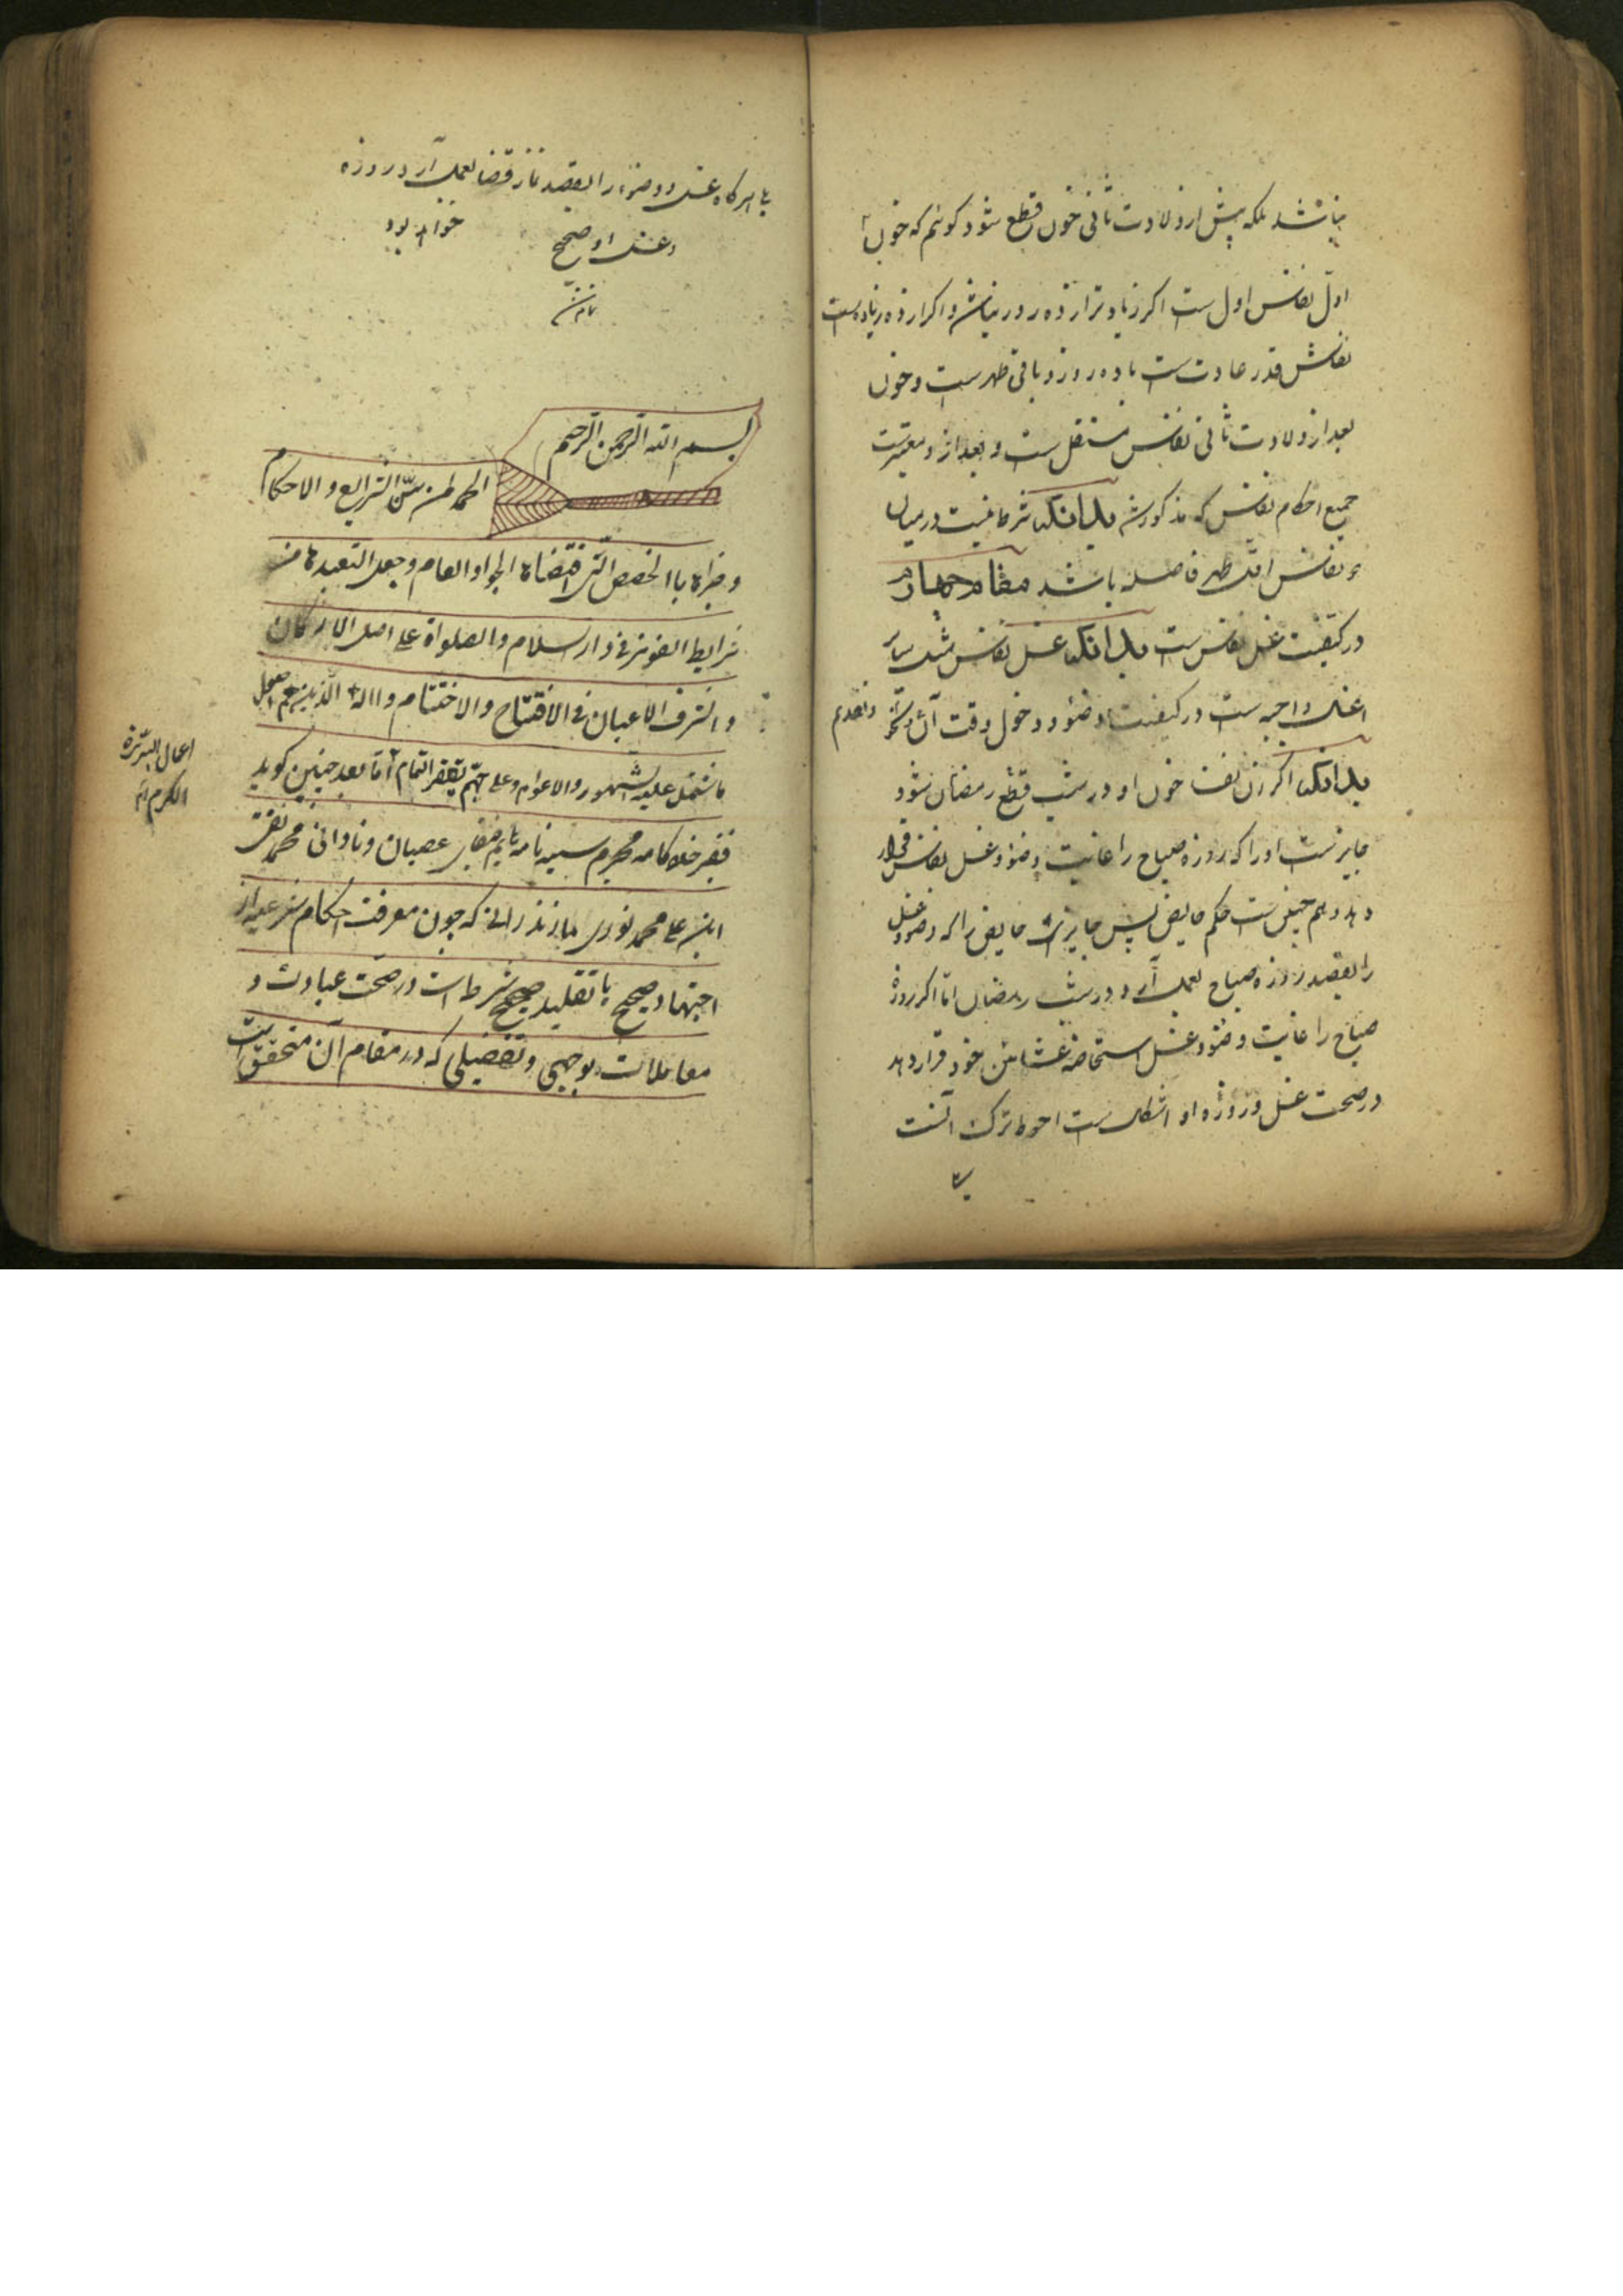 نباشد بلکه پیش از ولادت ثانی خون قطع شود کوئیم که خون
اول نفاس اول ست اکر زیادتر از ده روز نباشد و اکر از ده زیاده ست
نفاسش قدر عادت ست تا ده روز و باقی طهر ست و خون
بعد از ولادت ثانی نفاس مستقل ست و بعد از و معتبرست
جمیع احکام نفاس که مذکور شد بدانکه شرط نیست در میان
دو نفاس اقل طهر فاصله باشد مقام چهارم
در کیفیت غسل نفاس ست بدانکه غسل نفاس مثل سایر
اغسال واجبه ست در کیفیت وضوء و دخول وقت آن و تأخر و تقدم
بدانکه اکر زن نفسا خون او در شب قطع رمضان شود
جایز ست او را که روزه صباح را غایت وضوء و غسل نفاس قرار
دهد و هم چنین ست حکم حایض پس جایز ست حایض را که وضوء و غسل
را بقصد روزه صباح بعمل آرد در شب رمضان اما اکر روزه
صباح را غایت وضوء و غسل استحاضه عشائین خود قرار دهد
در صحت غسل و روزه او اشکال ست احوط ترک آنست
یا هرکاه غسل و وضوء را بقصد نماز قضا بعمل آرد روزه
و غسل او صحیح خواهد بود
بسم الله الرحمن الرحیم
الحمد لمن سنّ الشرایع و الاحکام
و جعل التعبد
شرایط الفوز فی دار السلام و الصلواة علی اصل الارکان
و اشرف الاعیان فی الافتتاح و الاختتام و اله الذین بهم
ما شتمل علیه الشهور و الاعوام و علی اما بعد چنین کوید
فقیر مجرم سیه نامه عصیان و نادانی محمد تقی
ابن علی محمد نوری مازندرانی که چون معرفت احکام شرعیه از
اجتهاد صحیح یا تقلید صحیح شرط است در صحت عبادت و
معاملات بوجهی و تفصیلی که در مقام آن متحقق است
اعمال البررة
الکرم